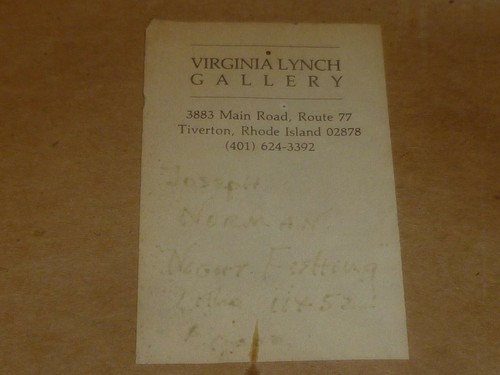 VIRGINIA LYNCH
GALLERY
3883 Main Road, Route 77
Tiverton, Rhode Island 02878
(401) 624-3392
Joseph
NORMAN
Night Fishing
Litho